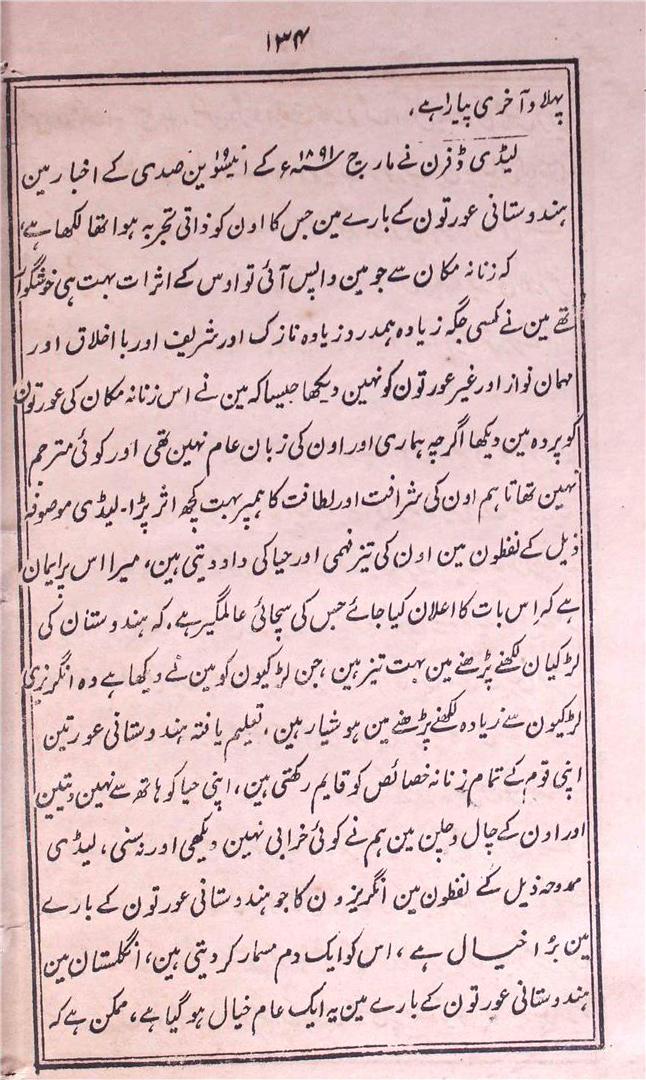 ۱۳۴
پہلا و آخری پیارا ہے۔
لیڈی ڈفرن نے مارچ ۱۸۹۱ء کے انیسوین صدی کے اخبار مین
ہندوستانی عورتون کے بارے مین جس کا اون کو ذاتی تجربہ ہوا تھا لکھا ہے،
کہ زنانہ مکان سے جو مین واپس آئی تو اوس کے اثرات بہت ہی خوشگوار
تھے مین نے کسی جگہ زیادہ ہمدرد زیادہ نازک اور شریف اور بااخلاق اور
مہمان نواز اور غیر عورتون کو نہین دیکھا جیسا کہ مین نے اس زنانہ مکان کی عورتون
کو پردہ مین دیکھا اگرچہ ہماری اور اون کی زبان عام نہین تھی اور کوئی مترجم
نہین تھا تاہم اون کی شرافت اور لطافت کا ہمپر بہت کچھ اثر پڑا۔ لیڈی موصوفہ
ذیل کے لفظون مین اون کی تیز فہمی اور حیا کی داد دیتی ہین، میرا اس پر ایمان
ہے کہ اِس بات کا اعلان کیا جائے جس کی سچائی عالمگیر ہے۔ کہ ہندوستان کی
لڑکیان لکھنے پڑھنے مین بہت تیز ہین، جن لڑکیون کو مین نے دیکھا ہے وہ انگریزی
لڑکیون سے زیادہ لکھنے پڑھنے مین ہوشیار ہین، تعلیم یافتہ ہندوستانی عورتین
اپنی قوم کے تمام زنانہ خصائص کو قایم رکھتی ہین، اپنی حیا کو ہاتھ سے نہین دیتین
اور اون کے چال و چلن مین ہم نے کوئی خرابی نہین دیکھی اور نہ سنی، لیڈی
ممدوحہ ذیل کے لفظون مین انگریزون کا جو ہندوستانی عورتون کے بارے
مین بُرا خیال ہے، اس کو ایک دم مسمار کر دیتی ہین، انگلستان مین
ہندوستانی عورتون کے بارے مین یہ ایک عام خیال ہو گیا ہے، ممکن ہے کہ